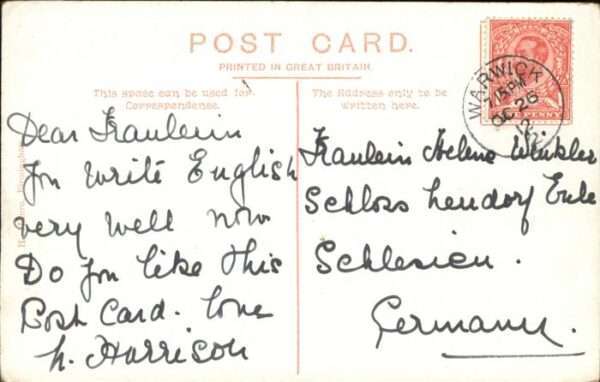 POST CARD.
PRINTED IN GREAT BRITAIN.
This space can be used for
Correspondence.
The Address only to be
written here.
WARWICK
15 PM
OC 26
12
PENNY
Dear Fraulein
You write English
very well now
Do you like this
Post Card. love
h. Harrison
Fraulein Helene Winkler
Schloss
Schlesien.
Germany.